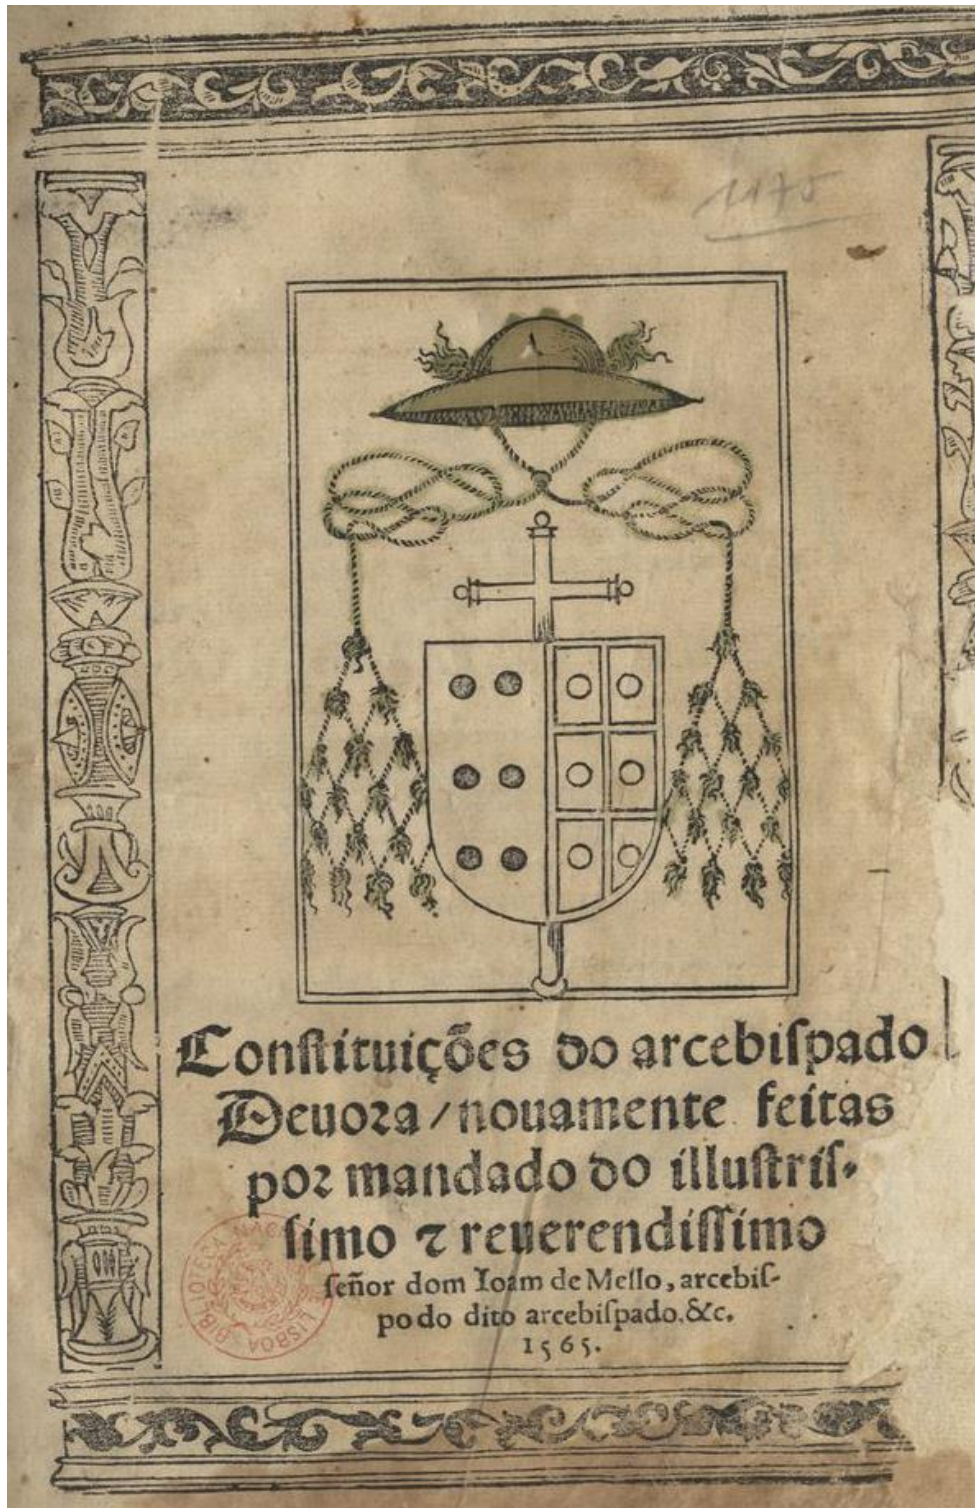 1175
Conſtituições do arcebiſpado
Deuora / nouamente feitas
por mandado do illuſtriſ-
ſimo ⁊ reuerendiſſimo
ſeñor dom Ioam de Mello, arcebiſ-
po do dito arcebiſpado.&c.
1565.
BIBLIOTECA NAC LISBOA